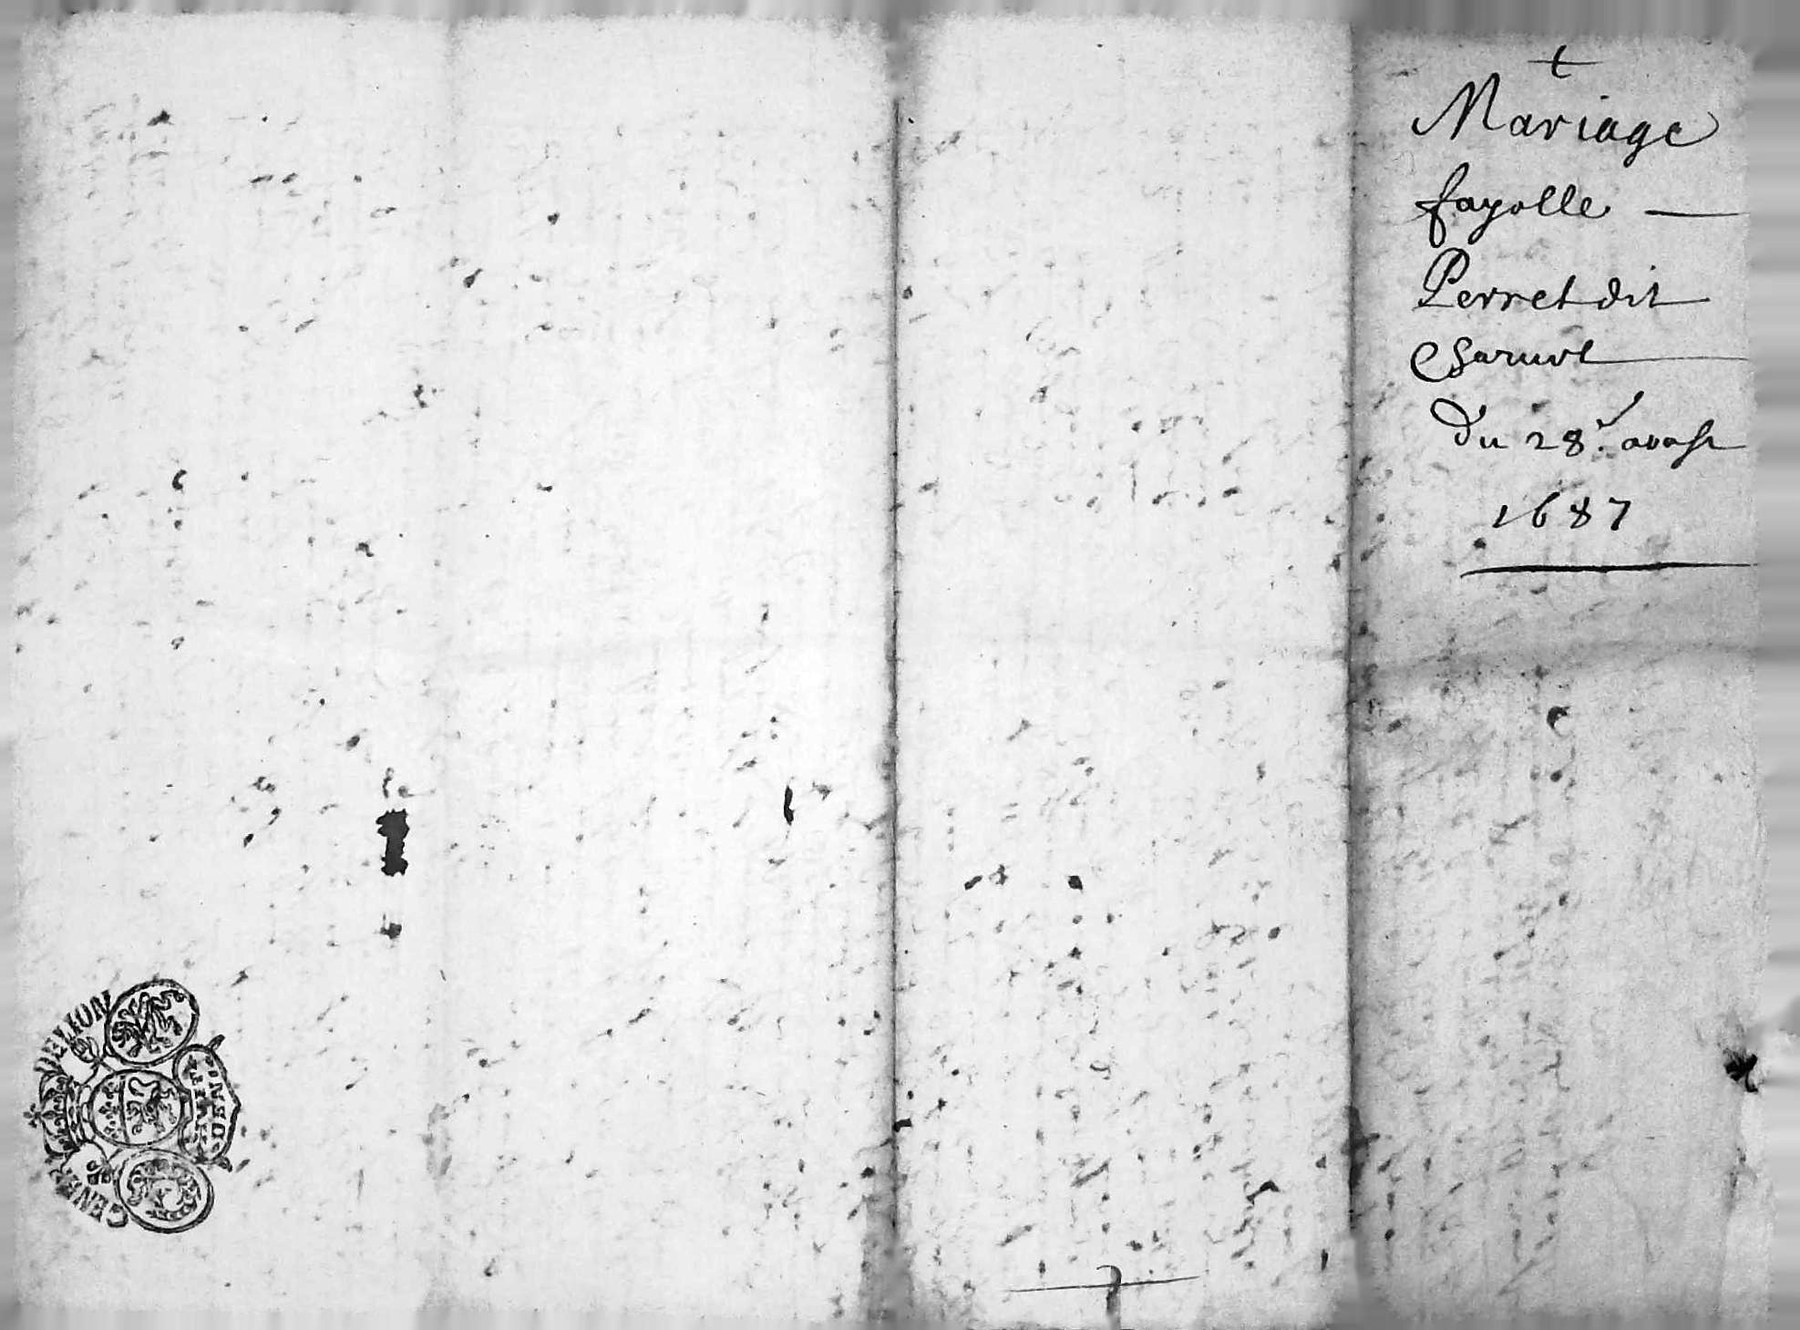 Mariage
fayolle
Perret dit
Charvot
du 28.e aoust
1687
GENER DE LION